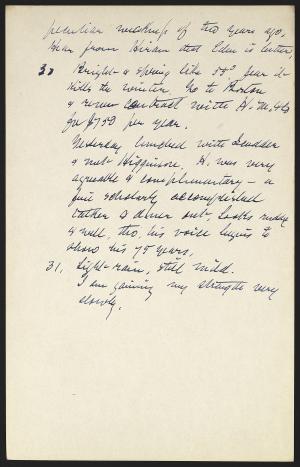 peculiar weakness of two years ago.
Hear from Hiram that Eden is better,
30 Bright & spring like 55° fear it
kills the winter. Go to Boston
& renew contract with H. M. & Co
for $750 per year.
Yesterday lunched with Scudder
& met Higginson. H. was very
agreeable & complimentary — a
fine scholarly accomplished
talker & diner out. Looks ruddy
& well, tho. his voice begins to
show his 75 years.
31. Light-rain, still mild.
I am gaining my strength very
slowly.